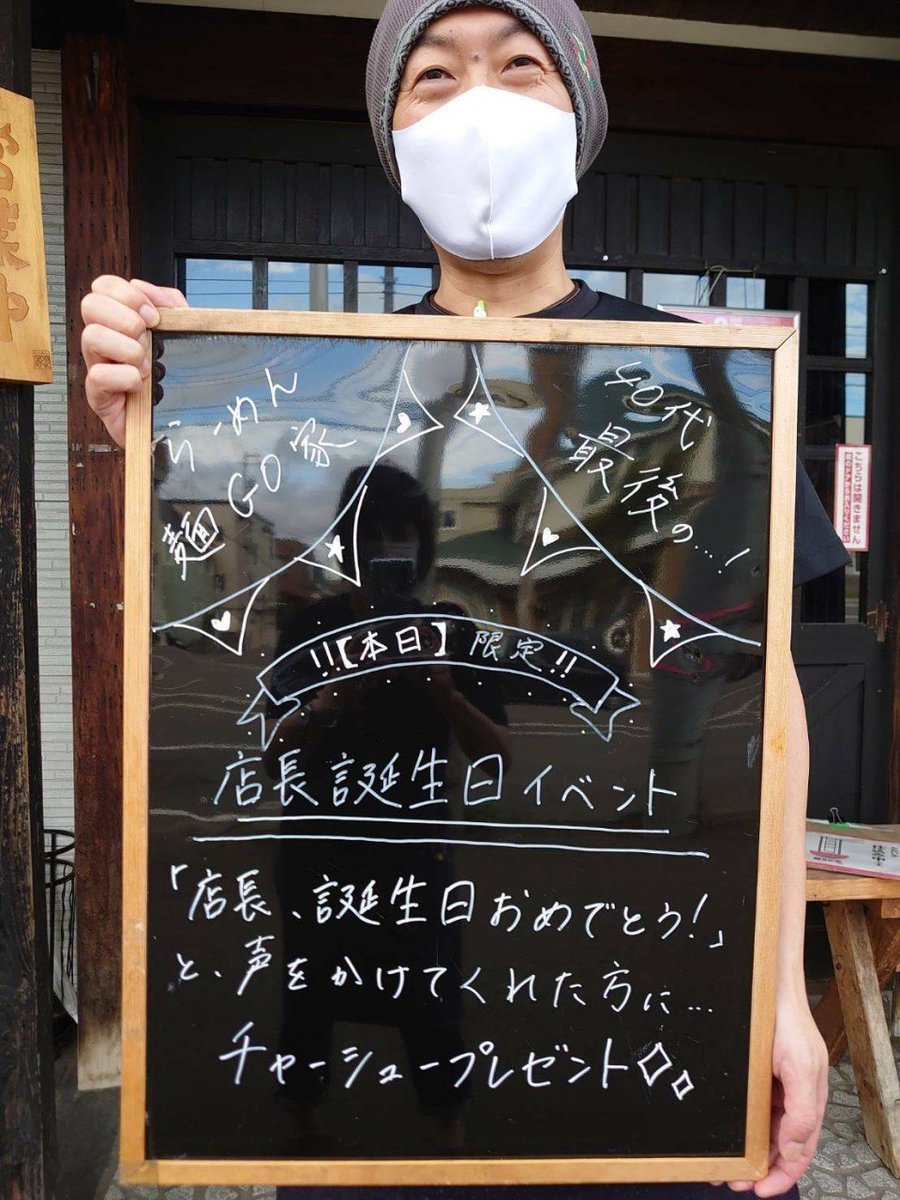 営業中
らーめん
麺GO家
40代
最後の…!
!!【本日】限定!!
店長誕生日イベント
「店長、誕生日おめでとう!」
と、声をかけてくれた方に…
チャーシュープレゼント
こちらは開きません